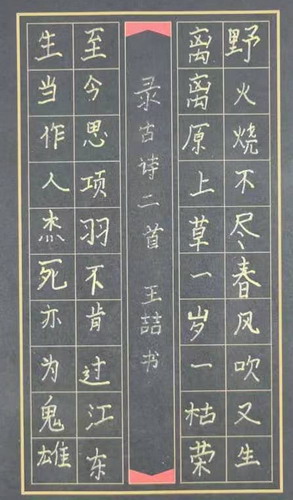 生当作人杰死亦为鬼雄
至今思项羽不肯过江东
录古诗二首 王喆书
离离原上草一岁一枯荣
野火烧不尽春风吹又生